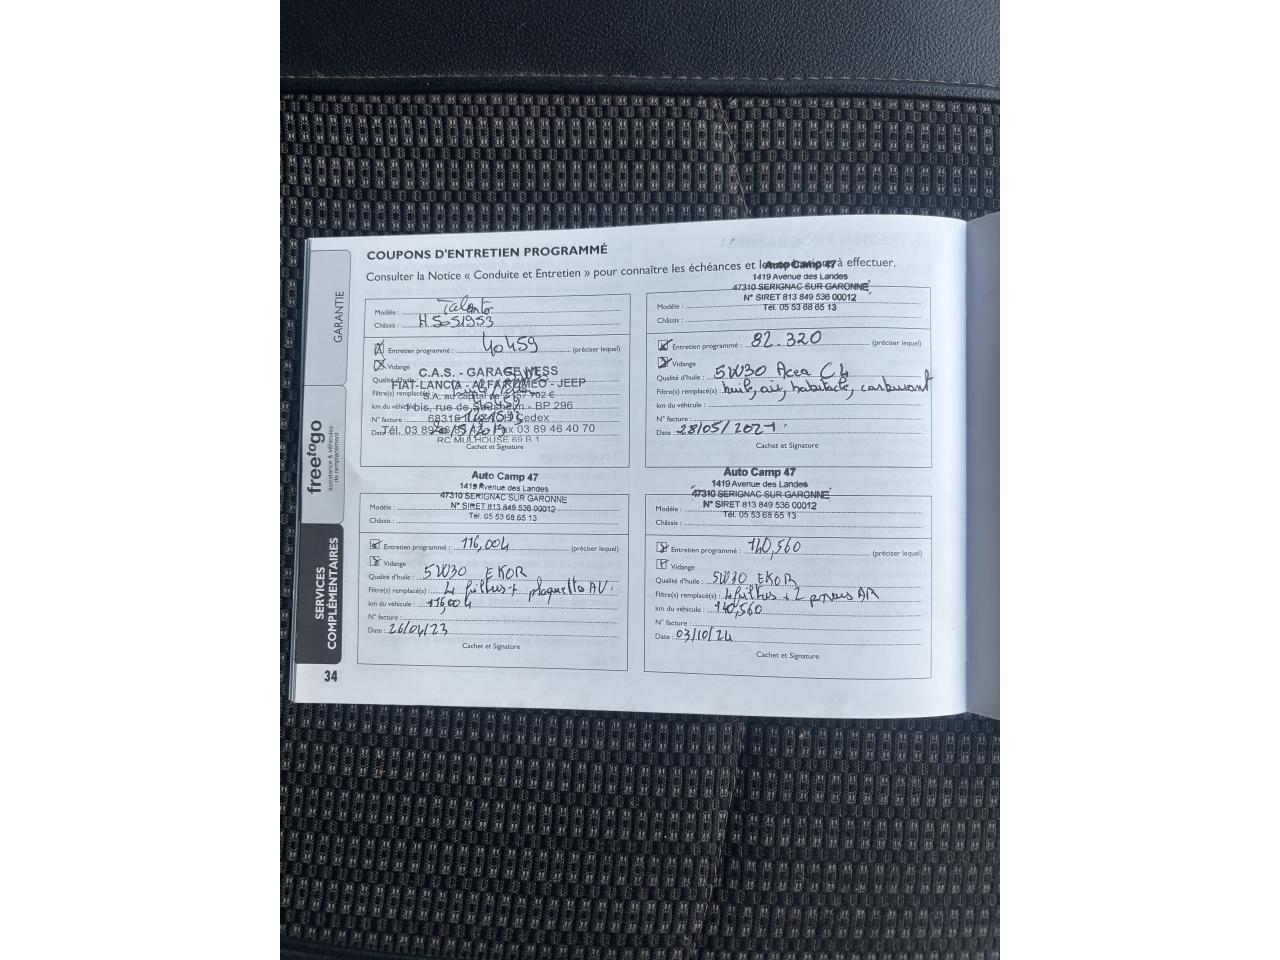 COUPONS D'ENTRETIEN PROGRAMMÉ
Consulter la Notice « Conduite et Entretien » pour connaître les échéances et les à effectuer.
GARANTIE
freetogo
assistance & véhicules de remplacement
SERVICES COMPLÉMENTAIRES
34
Modèle : Talento
Châssis :
Entretien programmé : 40459 (préciser lequel)
Vidange
Qualité d'huile :
Filtre(s) remplacé(s) :
km du véhicule :
N° facture :
Date :
C.A.S. - GARAGE HESS
FIAT-LANCIA - ALFA ROMEO - JEEP
S.A. au capital de
bis, rue de - BP 296
68316 Cedex
Tél. 03 89 Fax 03 89 46 40 70
RC MULHOUSE 69 B 1
Cachet et Signature
Auto Camp 47
1419 Avenue des Landes
47310 SERIGNAC SUR GARONNE
N° SIRET 813 849 536 00012
Tél. 05 53 68 65 13
Modèle :
Châssis :
Entretien programmé : 82.320 (préciser lequel)
Vidange
Qualité d'huile : 5W30 Acea C4
Filtre(s) remplacé(s) : huile, air, habitacle, carburant
km du véhicule :
N° facture :
Date : 28/05/2021
Cachet et Signature
Auto Camp 47
1419 Avenue des Landes
47310 SERIGNAC SUR GARONNE
N° SIRET 813 849 536 00012
Tél. 05 53 68 65 13
Modèle :
Châssis :
Entretien programmé : 116,004 (préciser lequel)
Vidange
Qualité d'huile : 5W30 EKOR
Filtre(s) remplacé(s) : 4 filtres + plaquette AV.
km du véhicule : 116,004
N° facture :
Date : 26/04/23
Cachet et Signature
Auto Camp 47
1419 Avenue des Landes
47310 SERIGNAC SUR GARONNE
N° SIRET 813 849 536 00012
Tél. 05 53 68 65 13
Modèle :
Châssis :
Entretien programmé : 140,560 (préciser lequel)
Vidange
Qualité d'huile : 5W30 EKOR
Filtre(s) remplacé(s) : 4 filtres + 2 pneus AR
km du véhicule : 140,560
N° facture :
Date : 03/10/24
Cachet et Signature